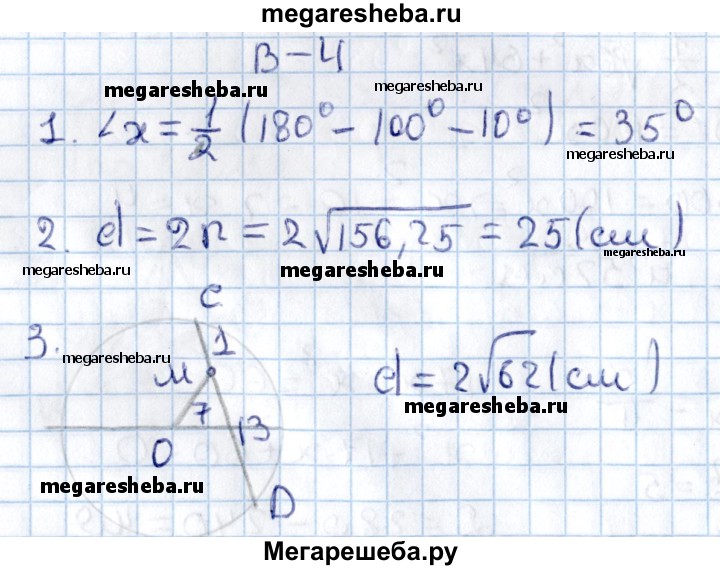 megaresheba.ru
В-4
megaresheba.ru
megaresheba.ru
1. ∠x = 1/2 (180° - 100° - 10°) = 35°
megaresheba.ru
2. d = 2r = 2√156,25 = 25 (см)
megaresheba.ru
megaresheba.ru
megaresheba.ru
C
3.
1
megaresheba.ru
M
d = 2√62 (см)
7
megaresheba.ru
13
O
megaresheba.ru
D
Мегарешеба.ру